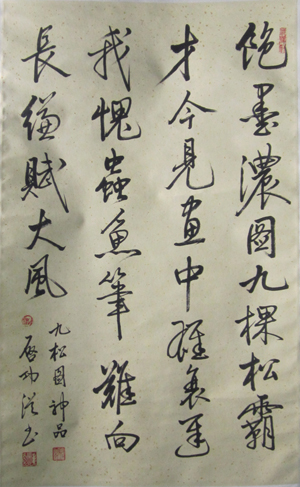 飽墨濃圖九棵松霸
才今見畫中雄衰遲
我愧蟲魚筆難向
長縑賦大風
九松圖神品
啟功